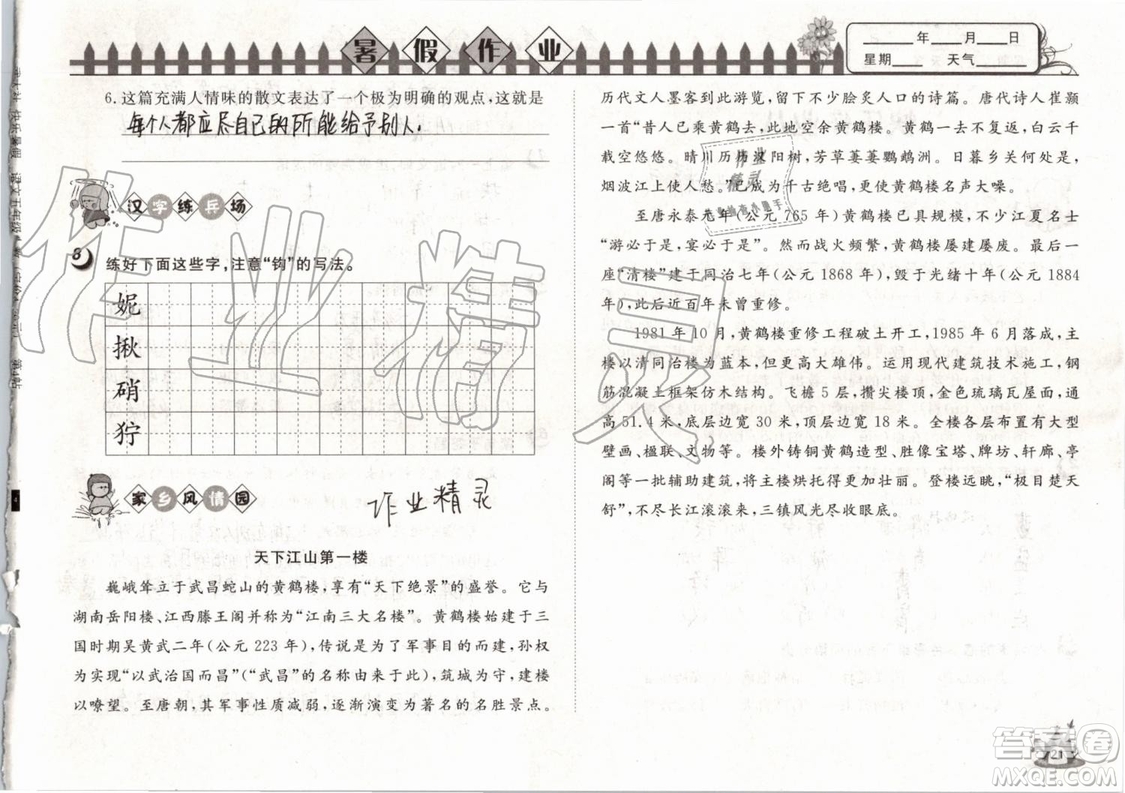 暑假作业
年 月 日
星期 天气
6.这篇充满人情味的散文表达了一个极为明确的观点,这就是
每个人都应尽自己的所能给予别人.
汉字练兵场
8
练好下面这些字,注意“钩”的写法。
妮
揪
硝
狞
家乡风情园
作业精灵
天下江山第一楼
巍峨耸立于武昌蛇山的黄鹤楼,享有“天下绝景”的盛誉。它与
湖南岳阳楼、江西滕王阁并称为“江南三大名楼”。黄鹤楼始建于三
国时期吴黄武二年(公元 223 年),传说是为了军事目的而建,孙权
为实现“以武治国而昌”(“武昌”的名称由来于此),筑城为守,建楼
以嘹望。至唐朝,其军事性质减弱,逐渐演变为著名的名胜景点。
历代文人墨客到此游览,留下不少脍炙人口的诗篇。唐代诗人崔颢
一首“昔人已乘黄鹤去,此地空余黄鹤楼。黄鹤一去不复返,白云千
载空悠悠。晴川历历汉阳树,芳草萋萋鹦鹉洲。日暮乡关何处是,
烟波江上使人愁。”已成为千古绝唱,更使黄鹤楼名声大噪。
至唐永泰元年(公元 765 年)黄鹤楼已具规模,不少江夏名士
“游必于是,宴必于是”。然而战火频繁,黄鹤楼屡建屡废。最后一
座“清楼”建于同治七年(公元 1868 年),毁于光绪十年(公元 1884
年),此后近百年未曾重修。
1981 年 10 月,黄鹤楼重修工程破土开工,1985 年 6 月落成,主
楼以清同治楼为蓝本,但更高大雄伟。运用现代建筑技术施工,钢
筋混凝土框架仿木结构。飞檐 5 层,攒尖楼顶,金色琉璃瓦屋面,通
高 51.4 米,底层边宽 30 米,顶层边宽 18 米。全楼各层布置有大型
壁画、楹联、文物等。楼外铸铜黄鹤造型、胜像宝塔、牌坊、轩廊、亭
阁等一批辅助建筑,将主楼烘托得更加壮丽。登楼远眺,“极目楚天
舒”,不尽长江滚滚来,三镇风光尽收眼底。
21
作业精灵
作业
精灵
答案卷
MXQE.COM